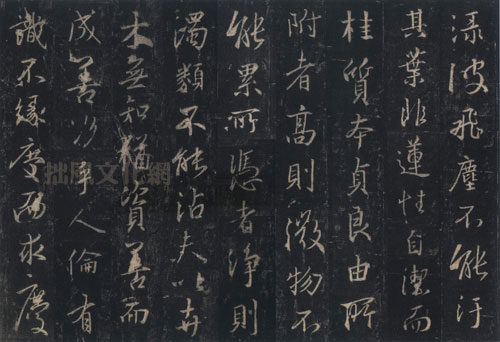 渌波飛塵不能汙
其葉非蓮性自潔而
桂質本貞良由所
附者高則微物不
能累所憑者淨則
濁類不能沾夫以卉
木無知猶資善而
成善況乎人倫有
識不緣慶而求慶
拙風文化網